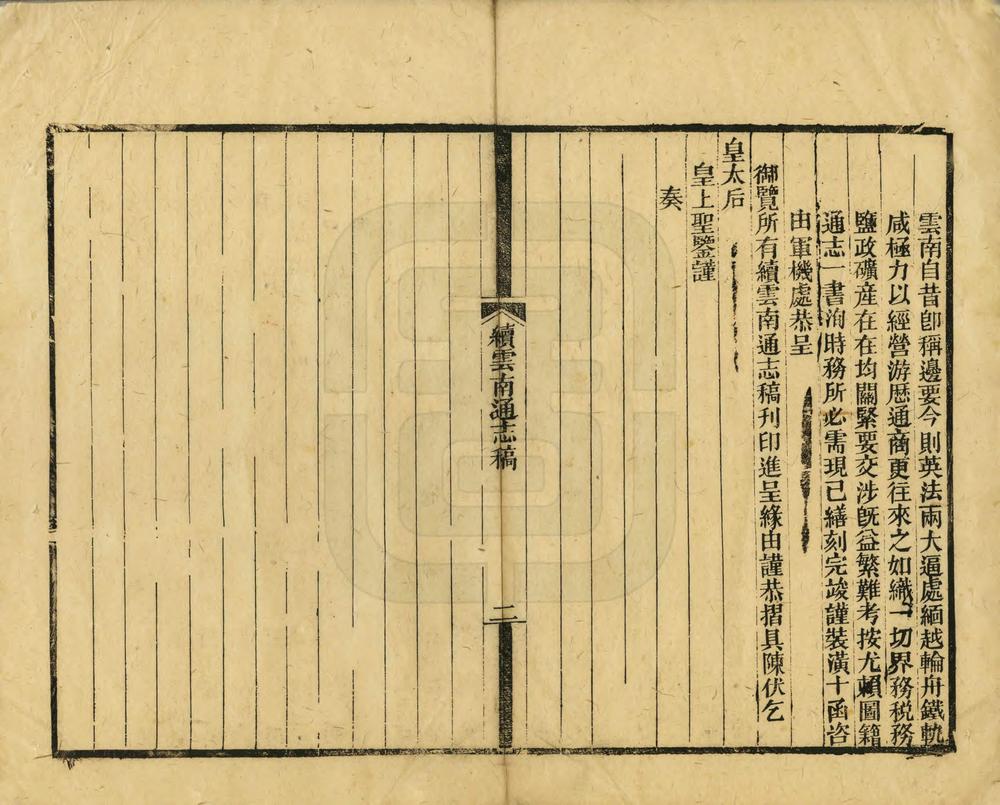 雲南自昔卽稱邊要今則英法兩大逼處緬越輪舟鐵軌
咸極力以經營游歷通商更往來之如織一切界務稅務
鹽政礦產在在均關緊要交涉旣益繁難考按尤賴圖籍
通志一書洵時務所必需現已繕刻完竣謹裝潢十函咨
由軍機處恭呈
御覽所有續雲南通志稿刊印進呈緣由謹恭摺具陳伏乞
皇太后
皇上聖鑒謹
奏
續雲南通志稿
二